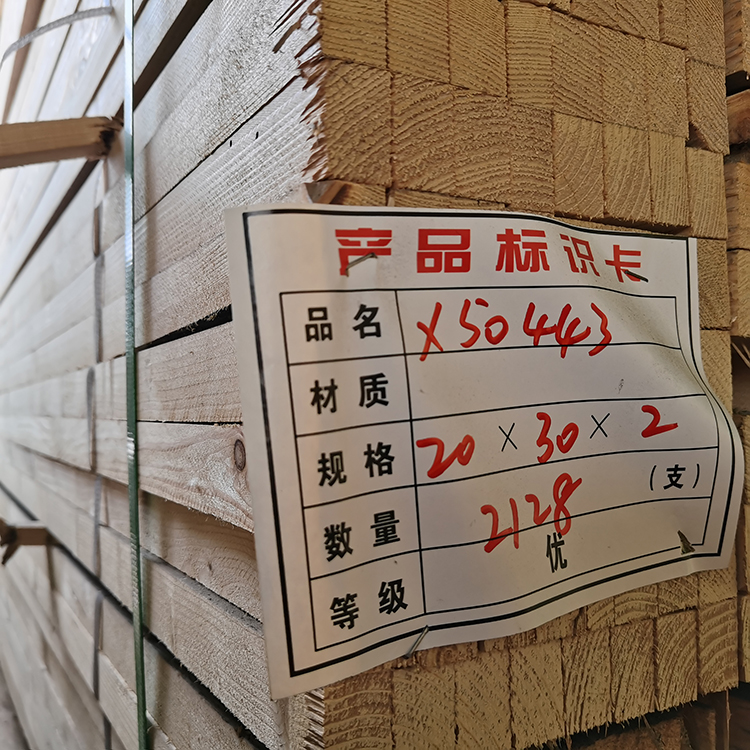 产品标识卡
品名 X50443
材质
规格 20×30×2
数量 2128 (支)
等级 优